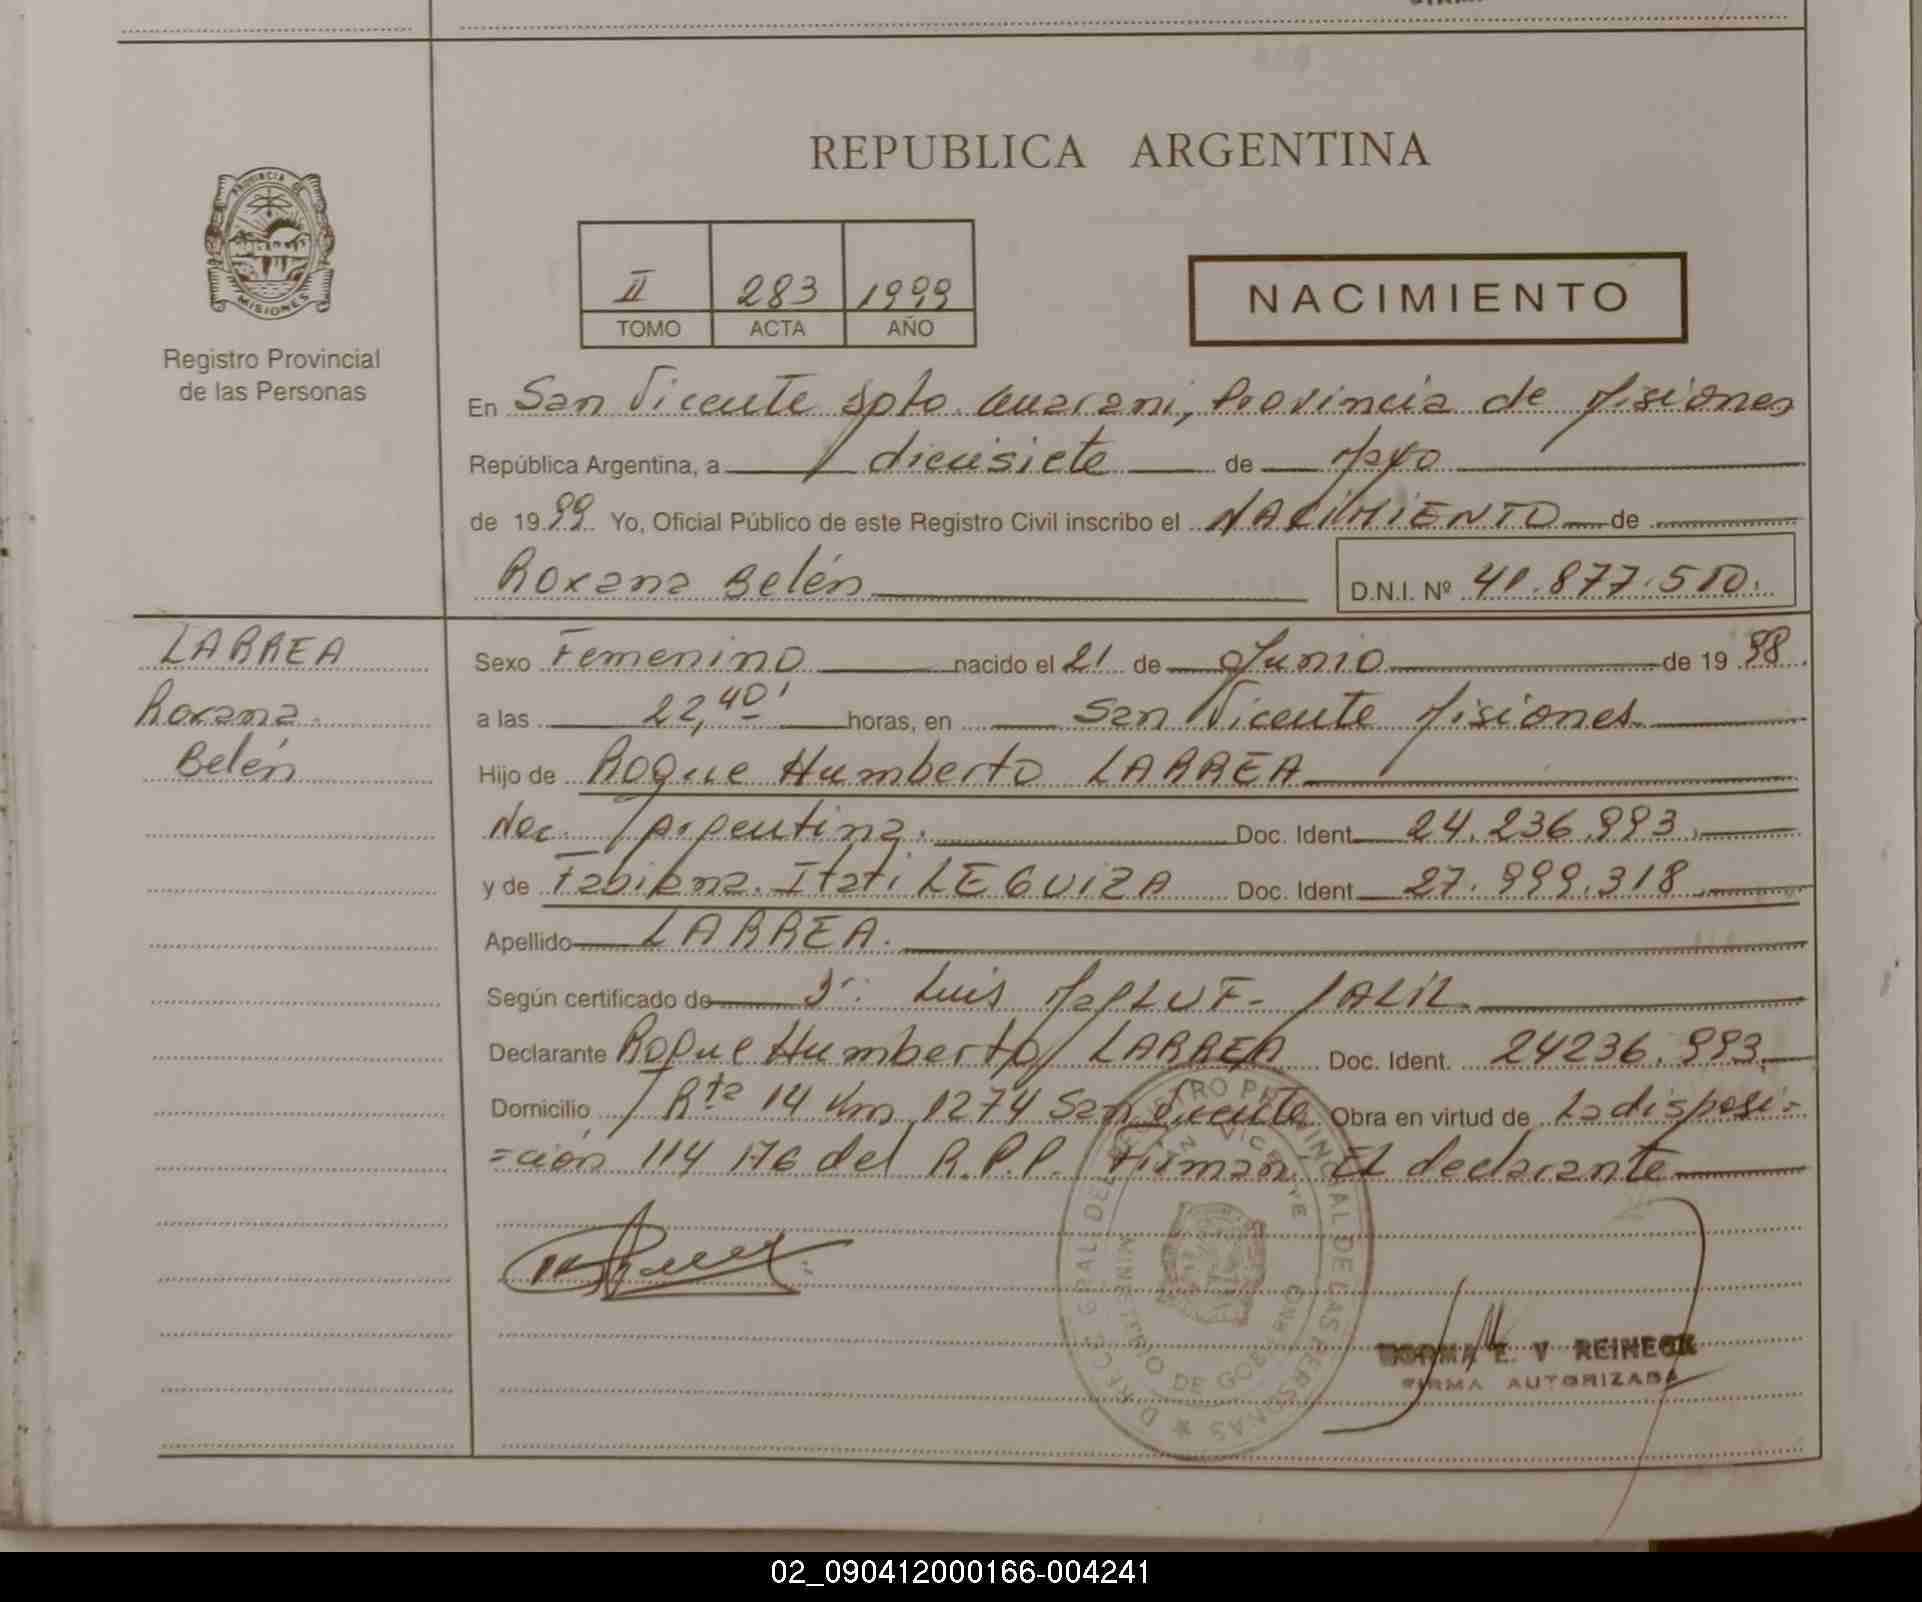 REPUBLICA ARGENTINA
PROVINCIA DE
MISIONES
Registro Provincial
de las Personas
II 283 1999
TOMO ACTA AÑO
NACIMIENTO
En San Vicente Dpto. Guarani, Provincia de Misiones
República Argentina, a diecisiete de Mayo
de 1999 Yo, Oficial Público de este Registro Civil inscribo el NACIMIENTO de
Roxana Belén D.N.I. Nº 41.877.510.
LARREA
Roxana
Belén
Sexo Femenino nacido el 21 de Junio de 19 98
a las 22,40' horas, en San Vicente Misiones
Hijo de Roque Humberto LARREA
Nac. Argentina. Doc. Ident. 24.236.993
y de Fabiana Itati LEGUIZA Doc. Ident. 27.999.318
Apellido LARREA.
Según certificado de Dr. Luis JALIL
Declarante Roque Humberto LARREA Doc. Ident. 24236.993
Domicilio Rta 14 Km 1274 San Vicente Obra en virtud de La disposi=
=ción 114 176 del R.P.P. Firman: El declarante
NORMA E. V REINECK
FIRMA AUTORIZADA
02_090412000166-004241